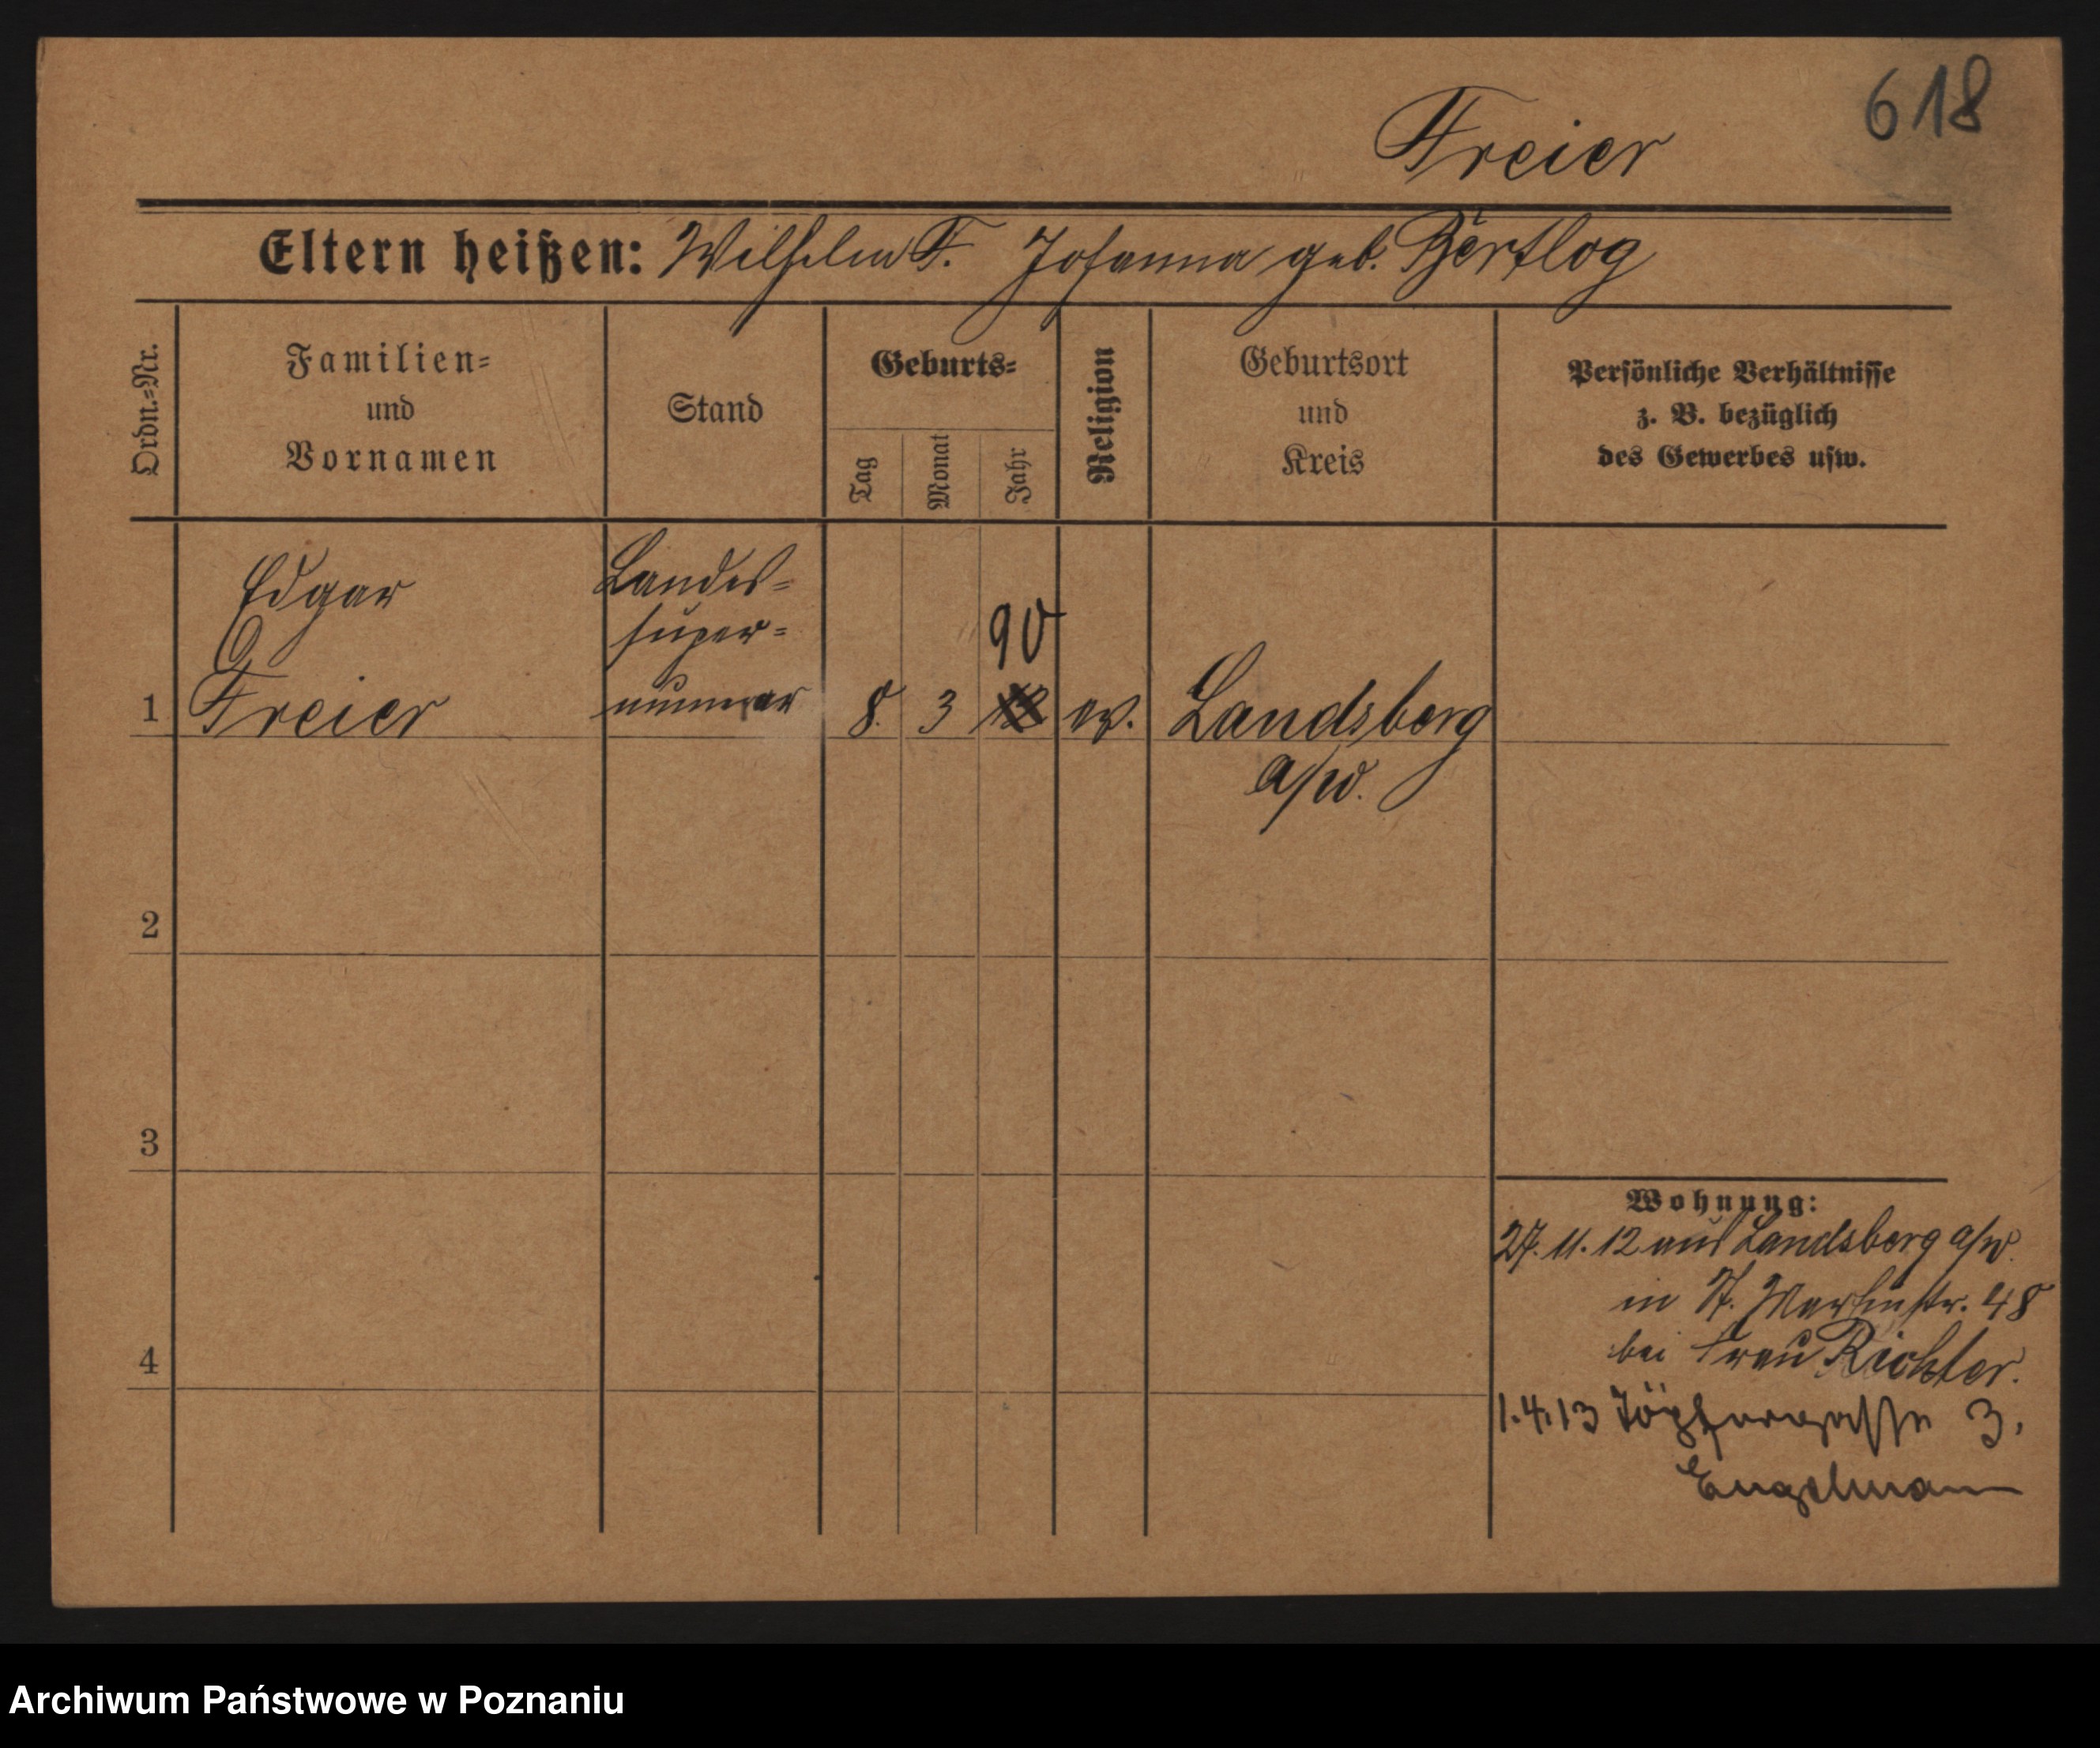 618
Freier
Eltern heißen: Wilhelm F. Johanna geb.
Ordn.-Nr.
Familien-
und
Vornamen
Stand
Geburts-
Tag
Monat
Jahr
Religion
Geburtsort
und
Kreis
Persönliche Verhältnisse
z. B. bezüglich
des Gewerbes usw.
Edgar
Landes-
super-
90
1 Freier numerar 8. 3 ev. Landsberg
a/W.
2
3
4
Wohnung:
27. 11. 12 aus Landsberg a/W.
in St. Martinstr. 48
bei Frau Richter.
1.4.13 Töpfergasse 3.
Engelmann
Archiwum Państwowe w Poznaniu